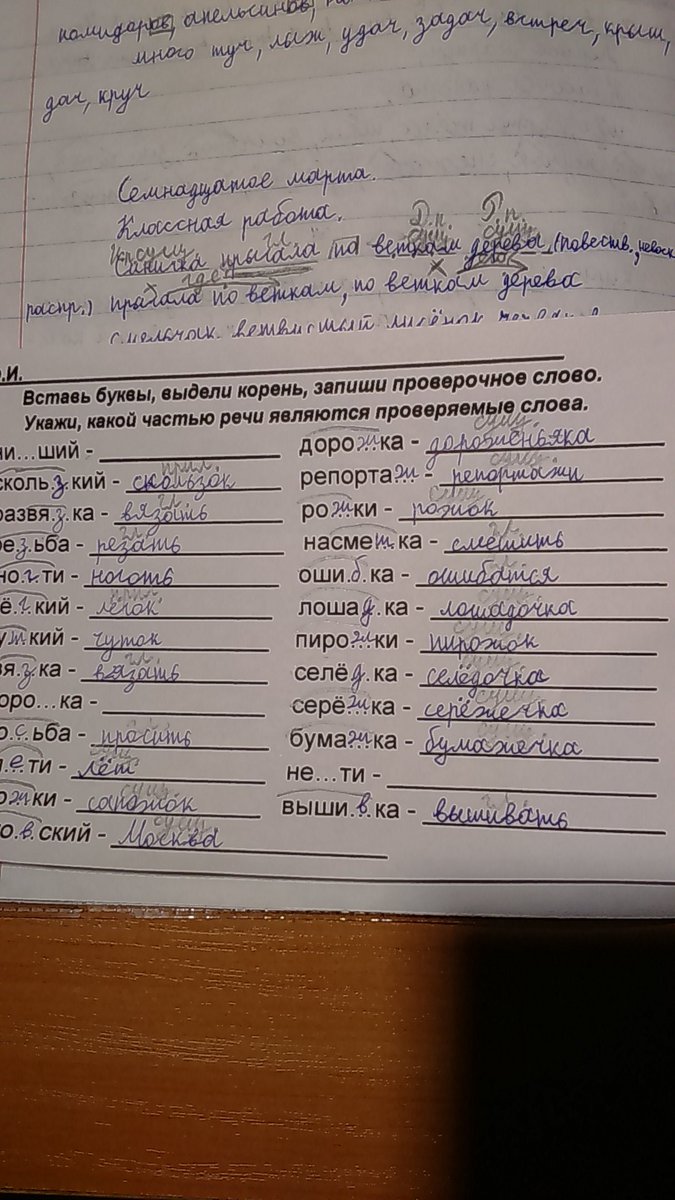 помидоров, апельсинов,
много туч, лыж, удач, задач, встреч, крыш,
дач, круч
Семнадцатое марта.
Классная работа.
Д.п. Р.п.
сущ. гл. сущ. сущ.
Синичка прыгала по веткам дерева. (повеств., невоск.,
× где? ×
распр.) прыгала по веткам, по веткам дерева
.И.
Вставь буквы, выдели корень, запиши проверочное слово.
Укажи, какой частью речи являются проверяемые слова.
ни...ший -
сколь.з.кий - скользок прил.
развя.з.ка - вязать гл.
ре.з.ьба - резать гл.
но.г.ти - ноготь
лё.г.кий - лёгок прил.
у.т.кий - чуток
вя.з.ка - вязать гл.
оро...ка -
ро.с.ьба - просить
.е.ти - лёт
о.ж.ки - сапожок сущ.
ко.в.ский - Москва сущ.
доро.ж.ка - дороженьяка сущ.
репорта.ж. - репортажи сущ.
ро.ж.ки - рожок сущ.
насме.ш.ка - смешить гл.
оши.б.ка - ошибатся
лоша.д.ка - лошадочка
пиро.ж.ки - пирожок сущ.
селё.д.ка - селёдочка
серё.ж.ка - серёжечка сущ.
бума.ж.ка - бумажечка сущ.
не...ти -
выши.в.ка - вышивать гл.